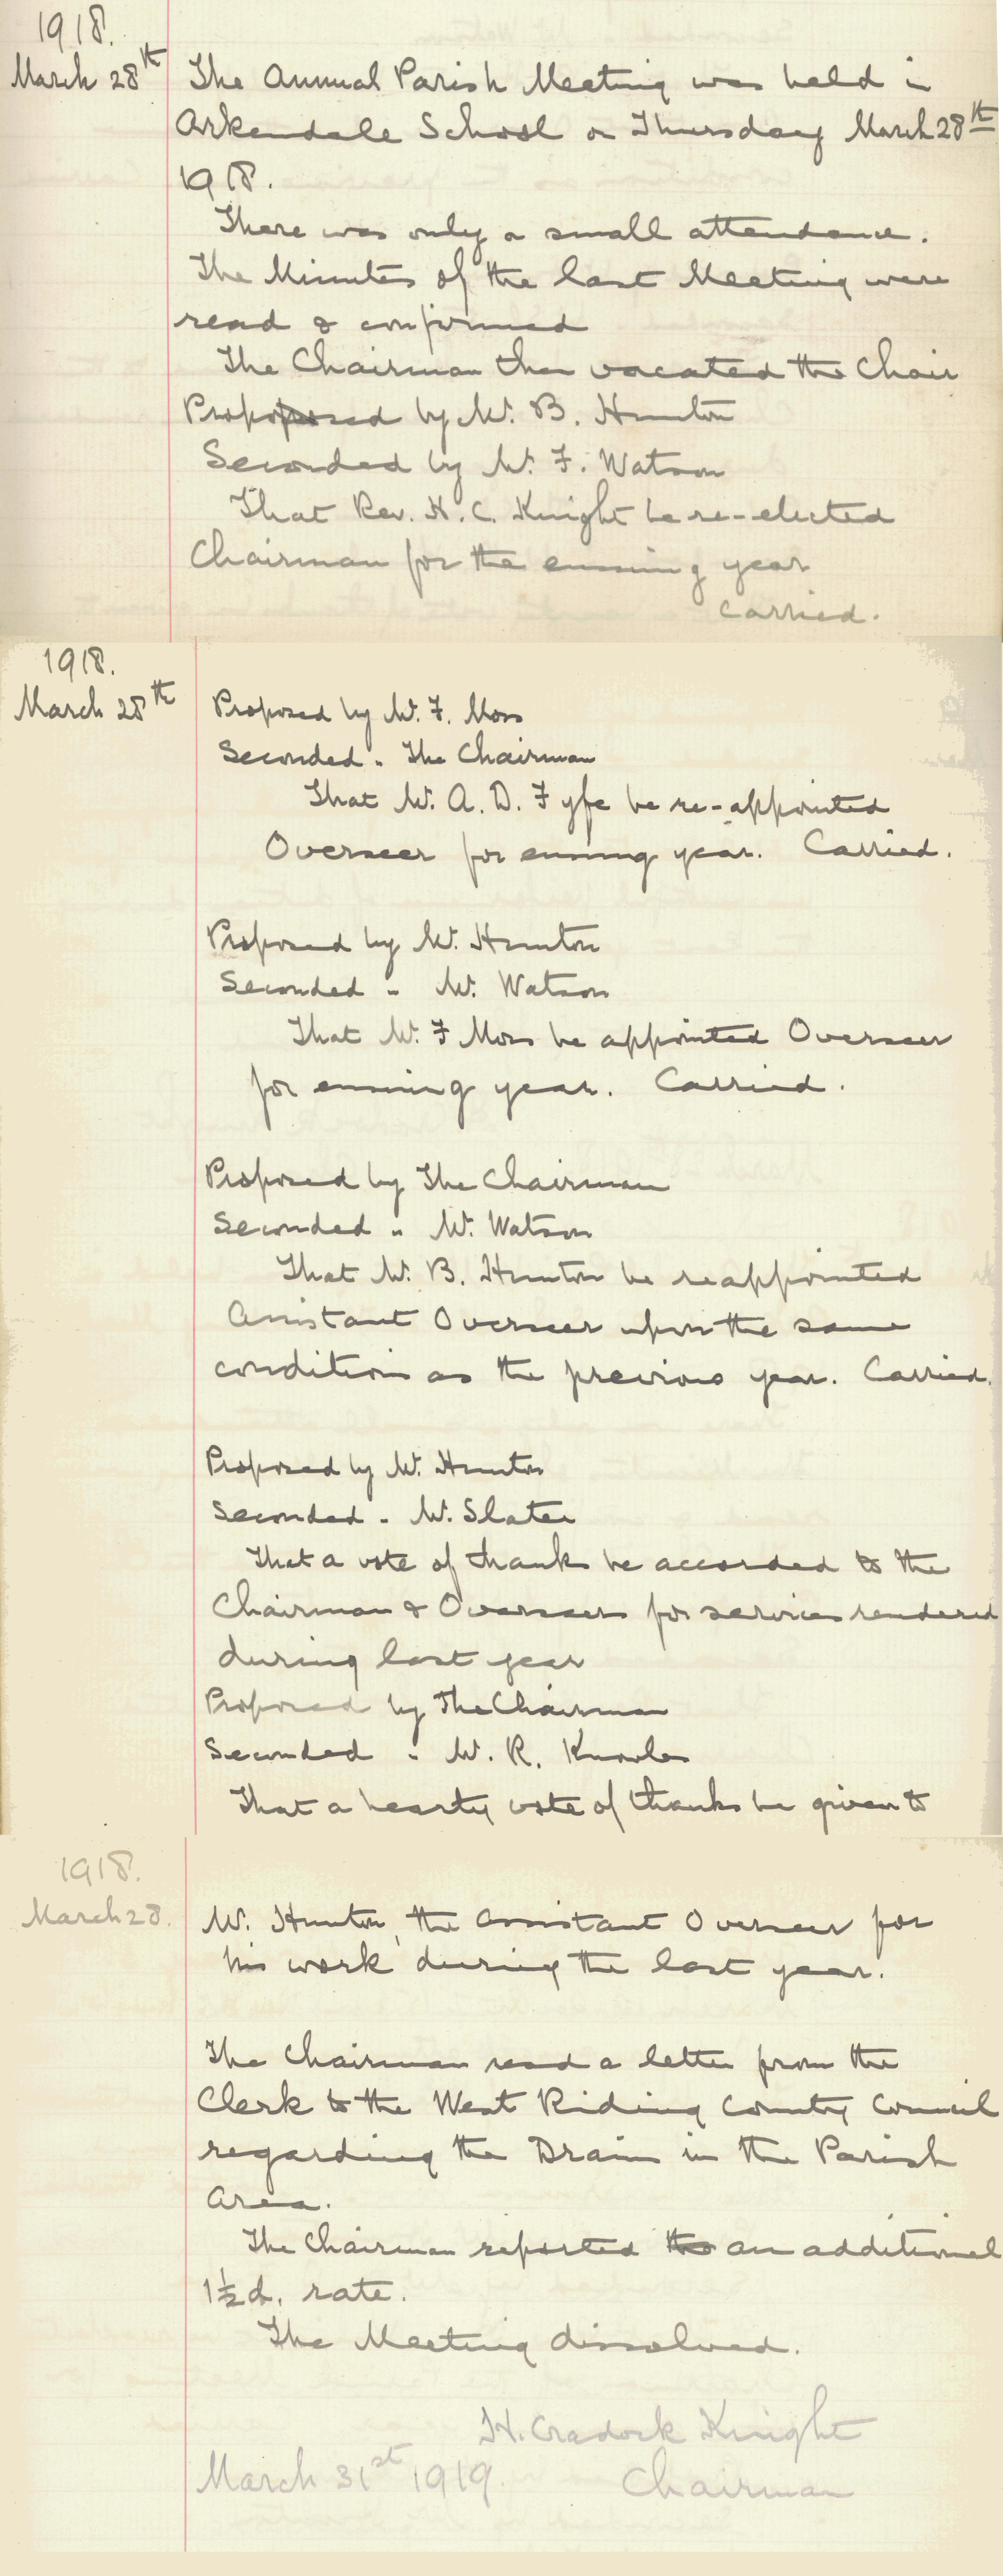 1918.
March 28th
The Annual Parish Meeting was held in
Arkendale School on Thursday March 28th
1918.
There was only a small attendance.
The Minutes of the last Meeting were
read & confirmed
The Chairman then vacated the Chair
Proposed by Mr. B. Hunton
Seconded by Mr. F. Watson
That Rev. H. C. Knight be re-elected
Chairman for the ensuing year
Carried.
1918.
March 28th
Proposed by Mr. F. Moss
Seconded " The Chairman
That Mr. A. D. Fyfe be re-appointed
Overseer for ensuing year. Carried.
Proposed by Mr. Hunton
Seconded " Mr. Watson
That Mr. F Moss be appointed Overseer
for ensuing year. Carried.
Proposed by The Chairman
Seconded " Mr. Watson
That Mr. B. Hunton be reappointed
Assistant Overseer upon the same
conditions as the previous year. Carried.
Proposed by Mr. Hunton
Seconded " Mr. Slater
That a vote of thanks be accorded to the
Chairman & Overseers for services rendered
during last year
Proposed by The Chairman
Seconded " Mr. R. Knowles
That a hearty vote of thanks be given to
1918.
March 28.
Mr. Hunton, the Assistant Overseer for
his work during the last year.
The Chairman read a letter from the
Clerk to the West Riding County Council
regarding the Drains in the Parish
Area.
The Chairman reported an additional
1½d. rate.
The Meeting dissolved.
H. Cradock Knight
March 31st 1919. Chairman